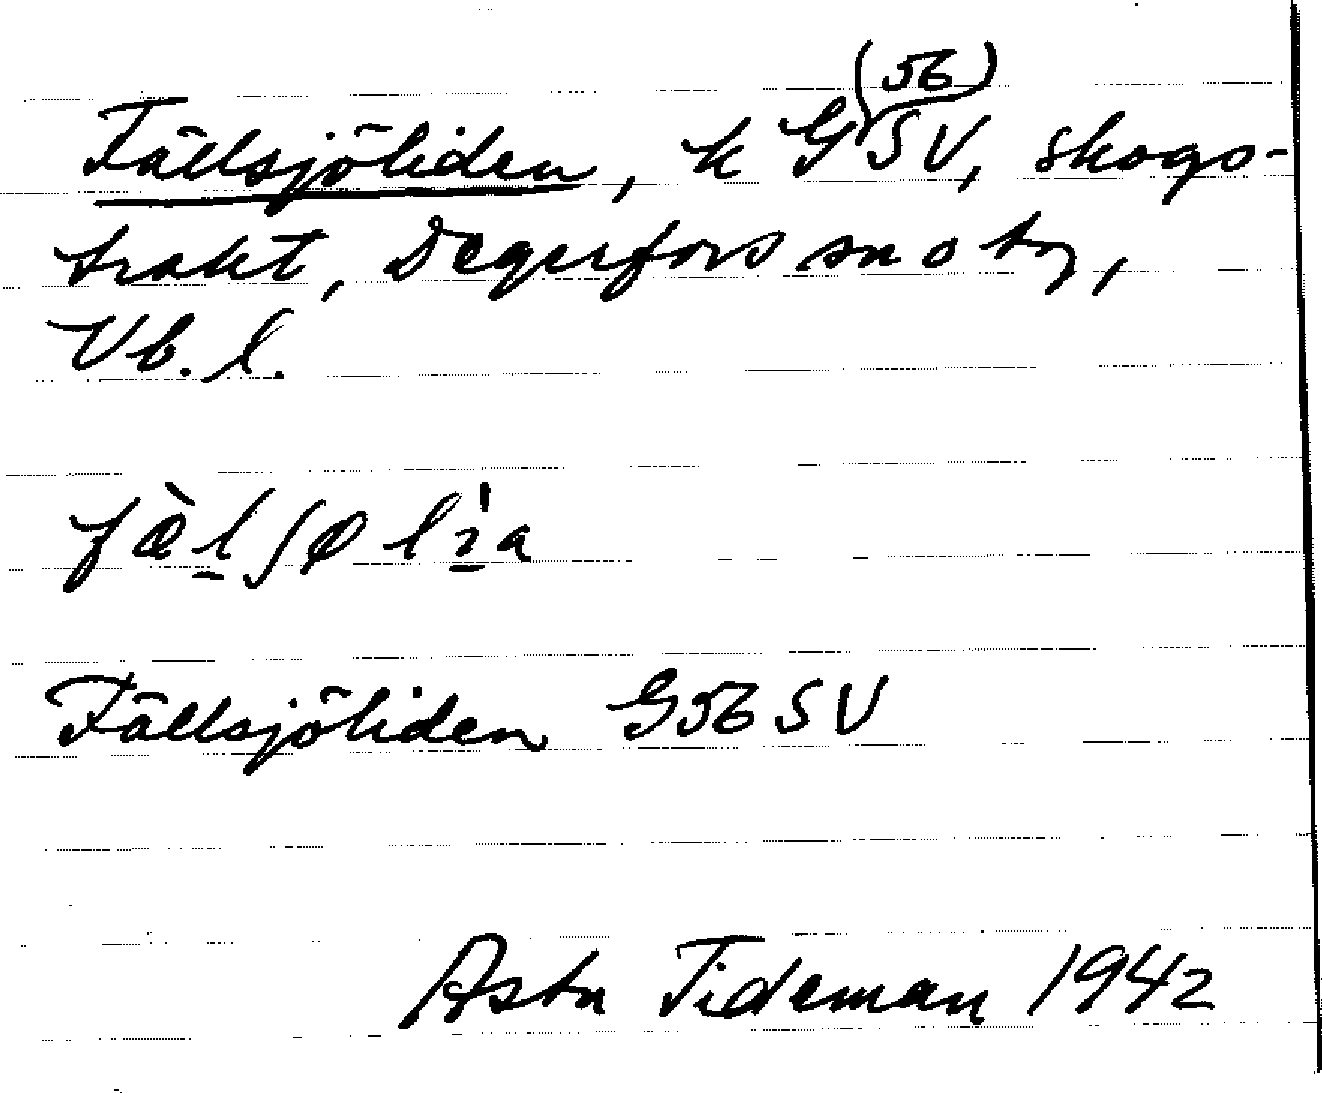 Fällsjöliden, k G(56)SV, skogs-
trakt, Degerfors sn o tg,
Vb. l.
fæ̀l̲ʃøli̲̍a
Fällsjöliden G56SV
Asta Tideman 1942